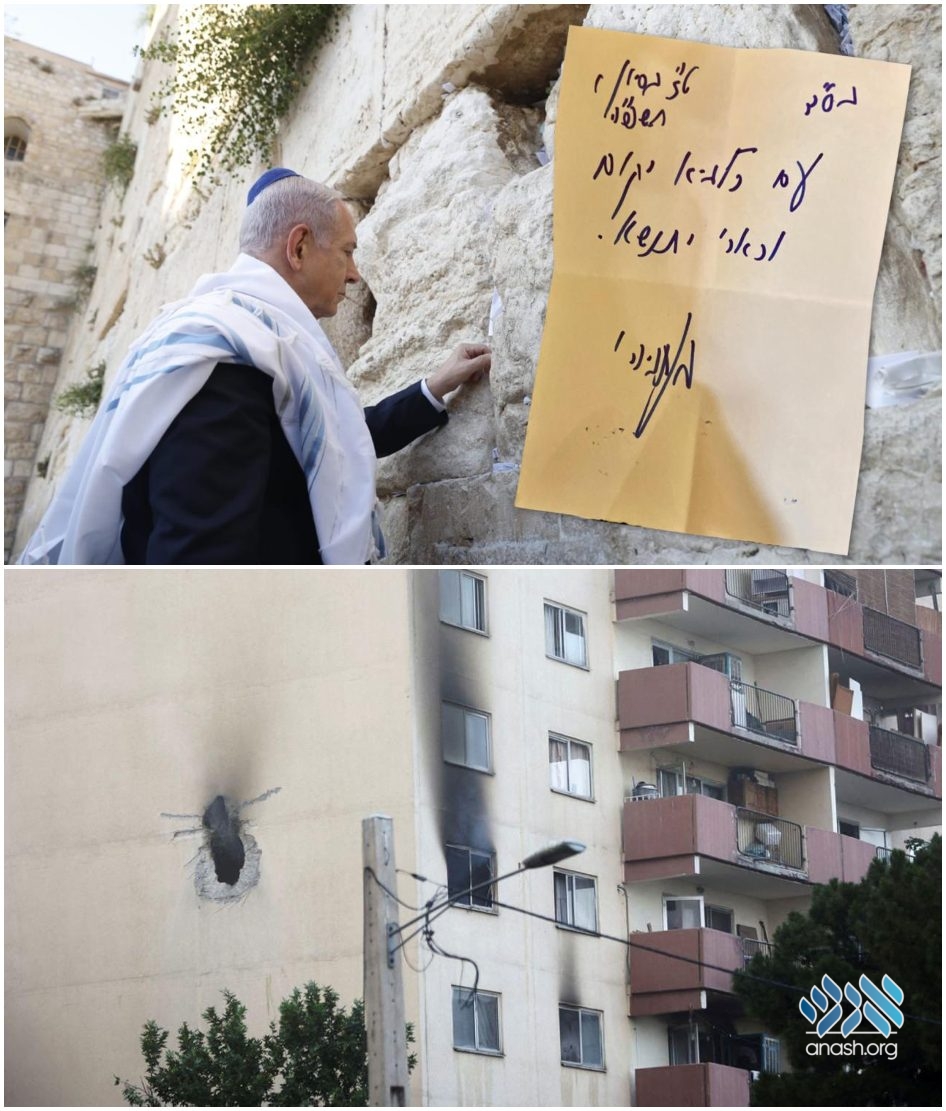 בס"ד
ט"ז בסיון
תשפ"ה
עם כלביא יקום
וכארי יתנשא.
נתניהו
אנש
anash.org